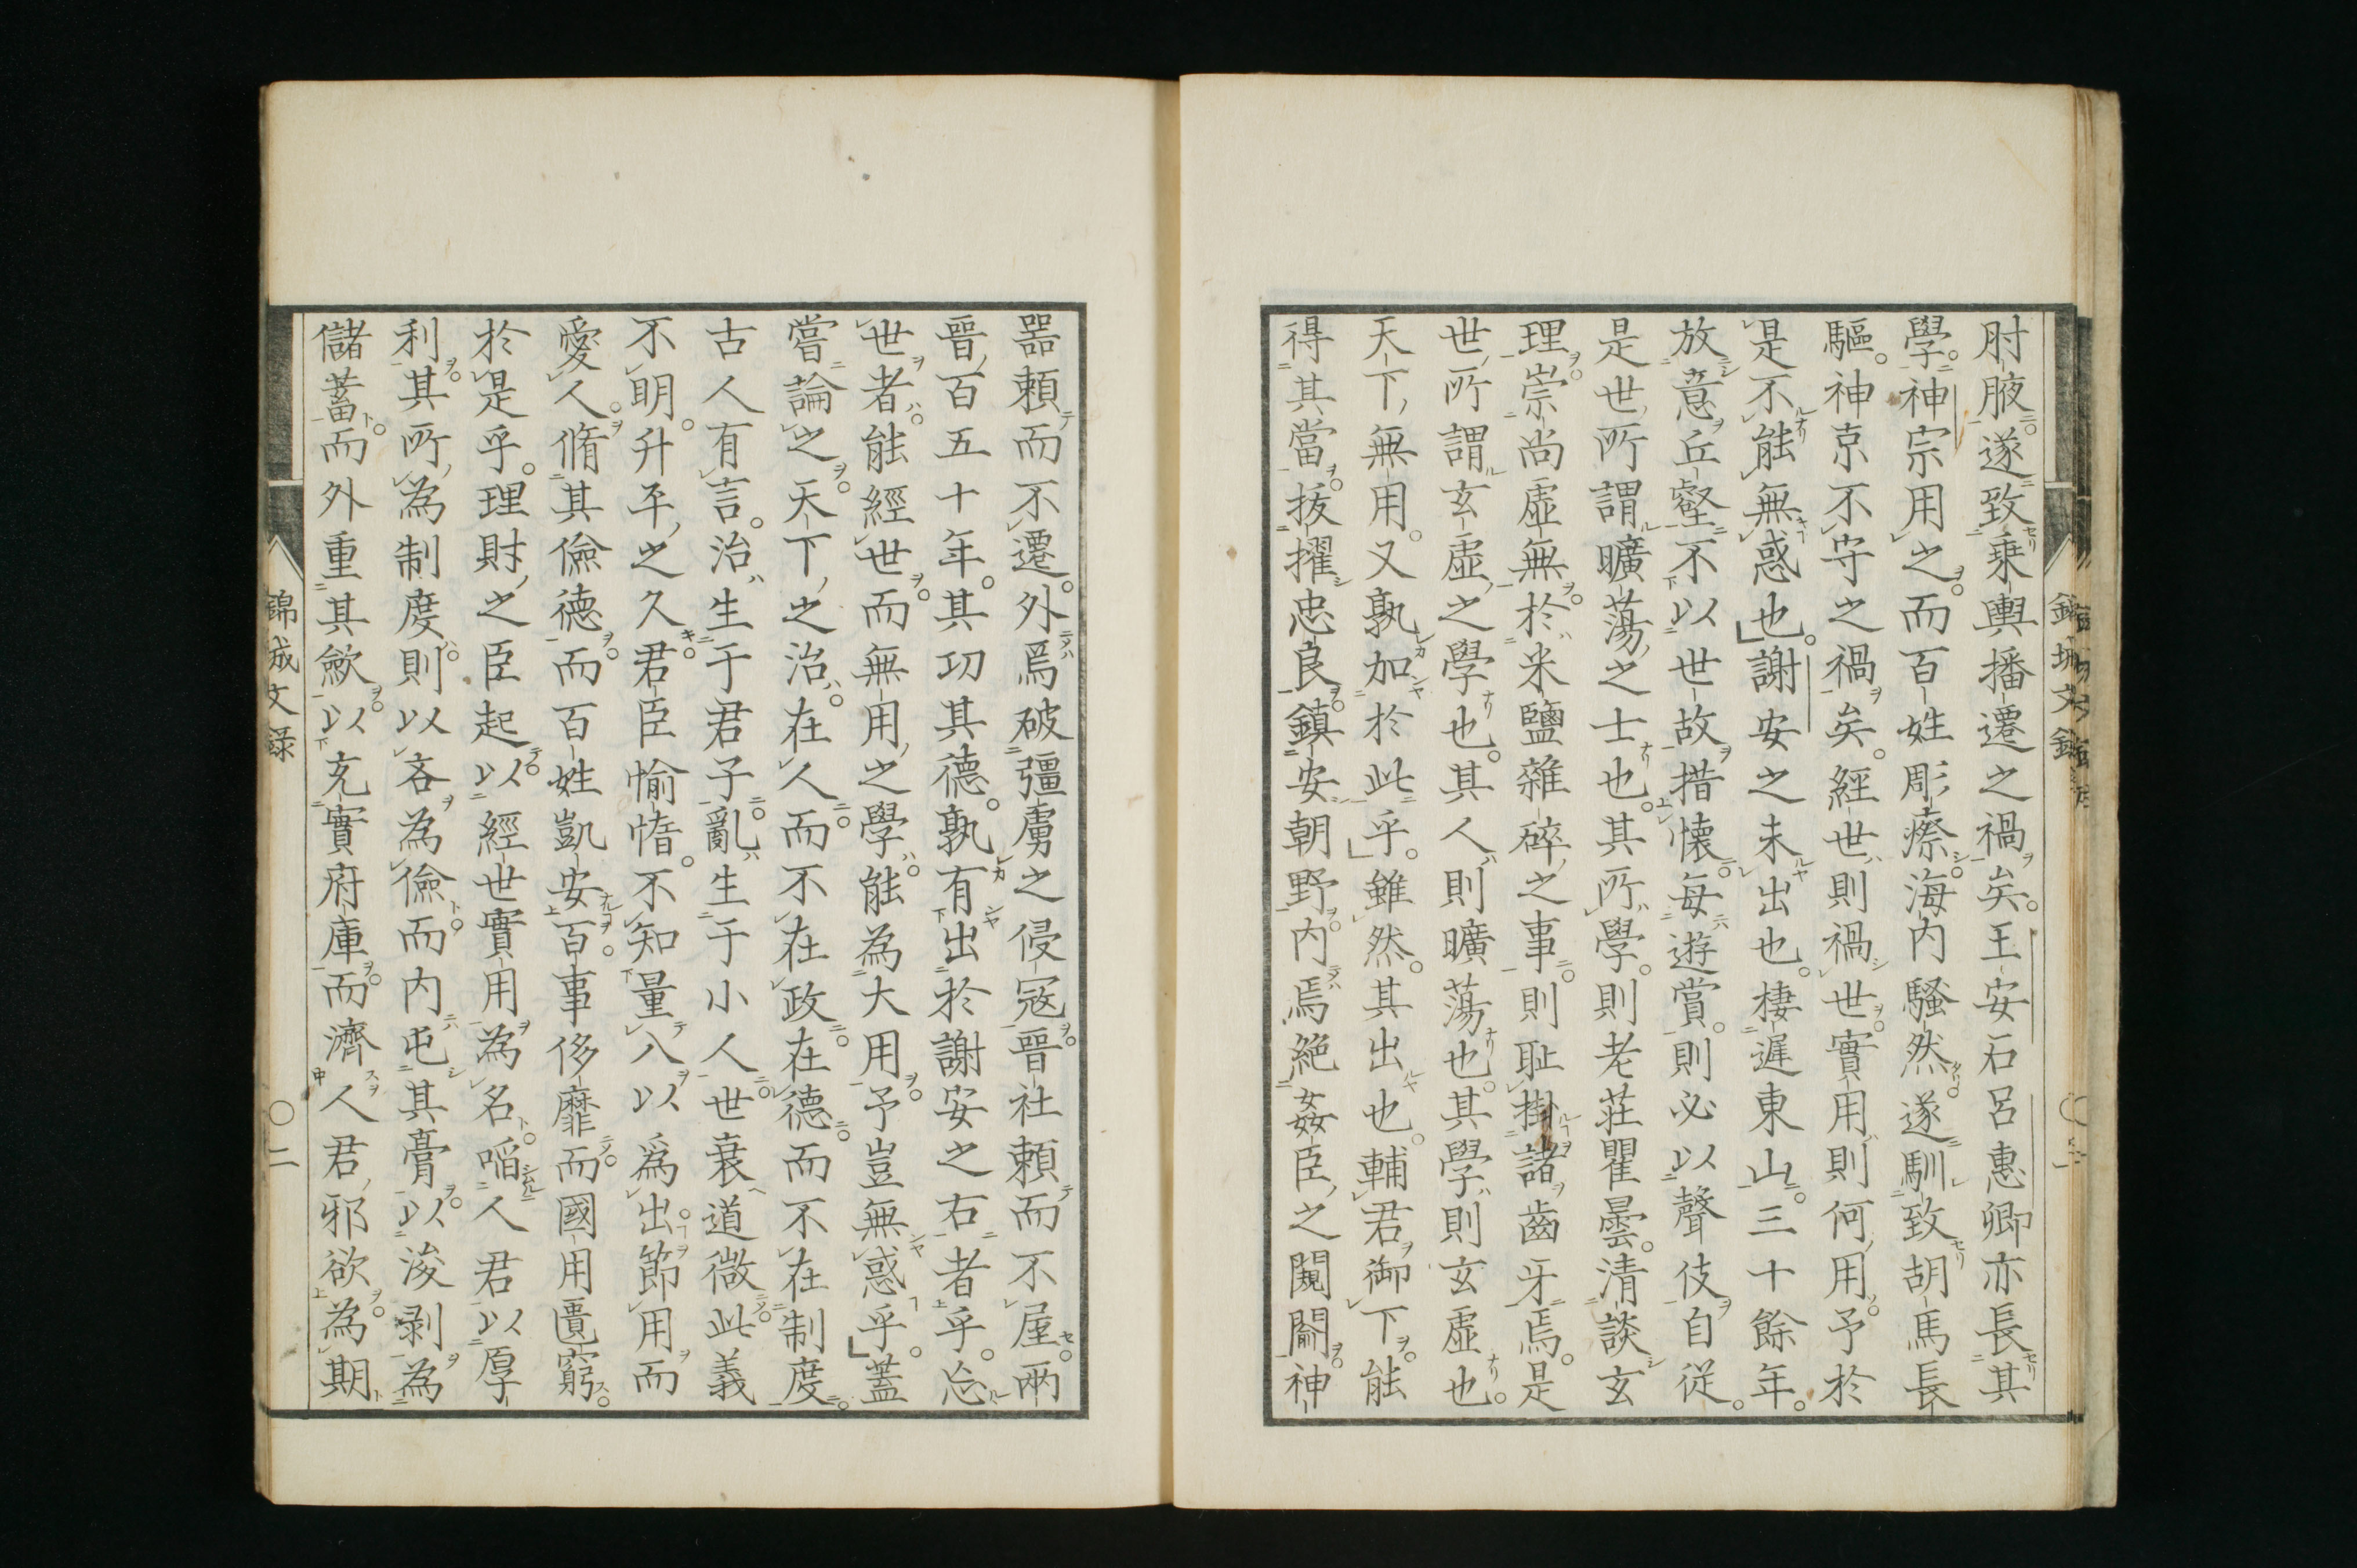 肘腋遂致乗輿播遷之禍矣。王安石呂惠卿亦長其
學。神宗用之。而百姓彫瘵。海内騷然。遂馴致胡馬長
驅。神京不守之禍矣。經世則禍世。實用則何用。予於
是不能無惑也。」謝安之未出也。棲遲東山。三十餘年。
放意丘壑。不以世故措懷。每遊賞。則必以聲伎自從。
是世所謂曠蕩之士也。其所學。則老莊瞿曇。清談玄
理。崇尚虛無。於米鹽雜碎之事。則耻掛諸齒牙焉。是
世所謂玄虛之學也。其人則曠蕩也。其學則玄虛也。
天下無用。又孰加於此乎。」雖然。其出也。輔君御下。能
得其當。拔擢忠良。鎮安朝野。内焉絶姦臣之闚闟。神
器頼而不遷。外焉破彊虜之侵寇。晉社頼而不屋。兩
晉百五十年。其功其德。孰有出於謝安之右者乎。忘
世者。能經世。而無用之學。能為大用。予豈無惑乎。」蓋
嘗論之。天下之治。在人。而不在政。在德。而不在制度。
古人有言。治生于君子。亂生于小人。世衰道微。此義
不明。升平之久。君臣愉惰。不知量入以爲出。節用而
愛人。脩其儉德。而百姓凱安。百事侈靡。而國用匱窮。
於是乎。理財之臣起。以經世實用為名。啗人君以厚
利。其所為制度。則以吝為儉。而内屯其膏。以浚剥為
儲蓄。而外重其斂。以充實府庫。而濟人君邪欲。為期
錦城文録
〇二